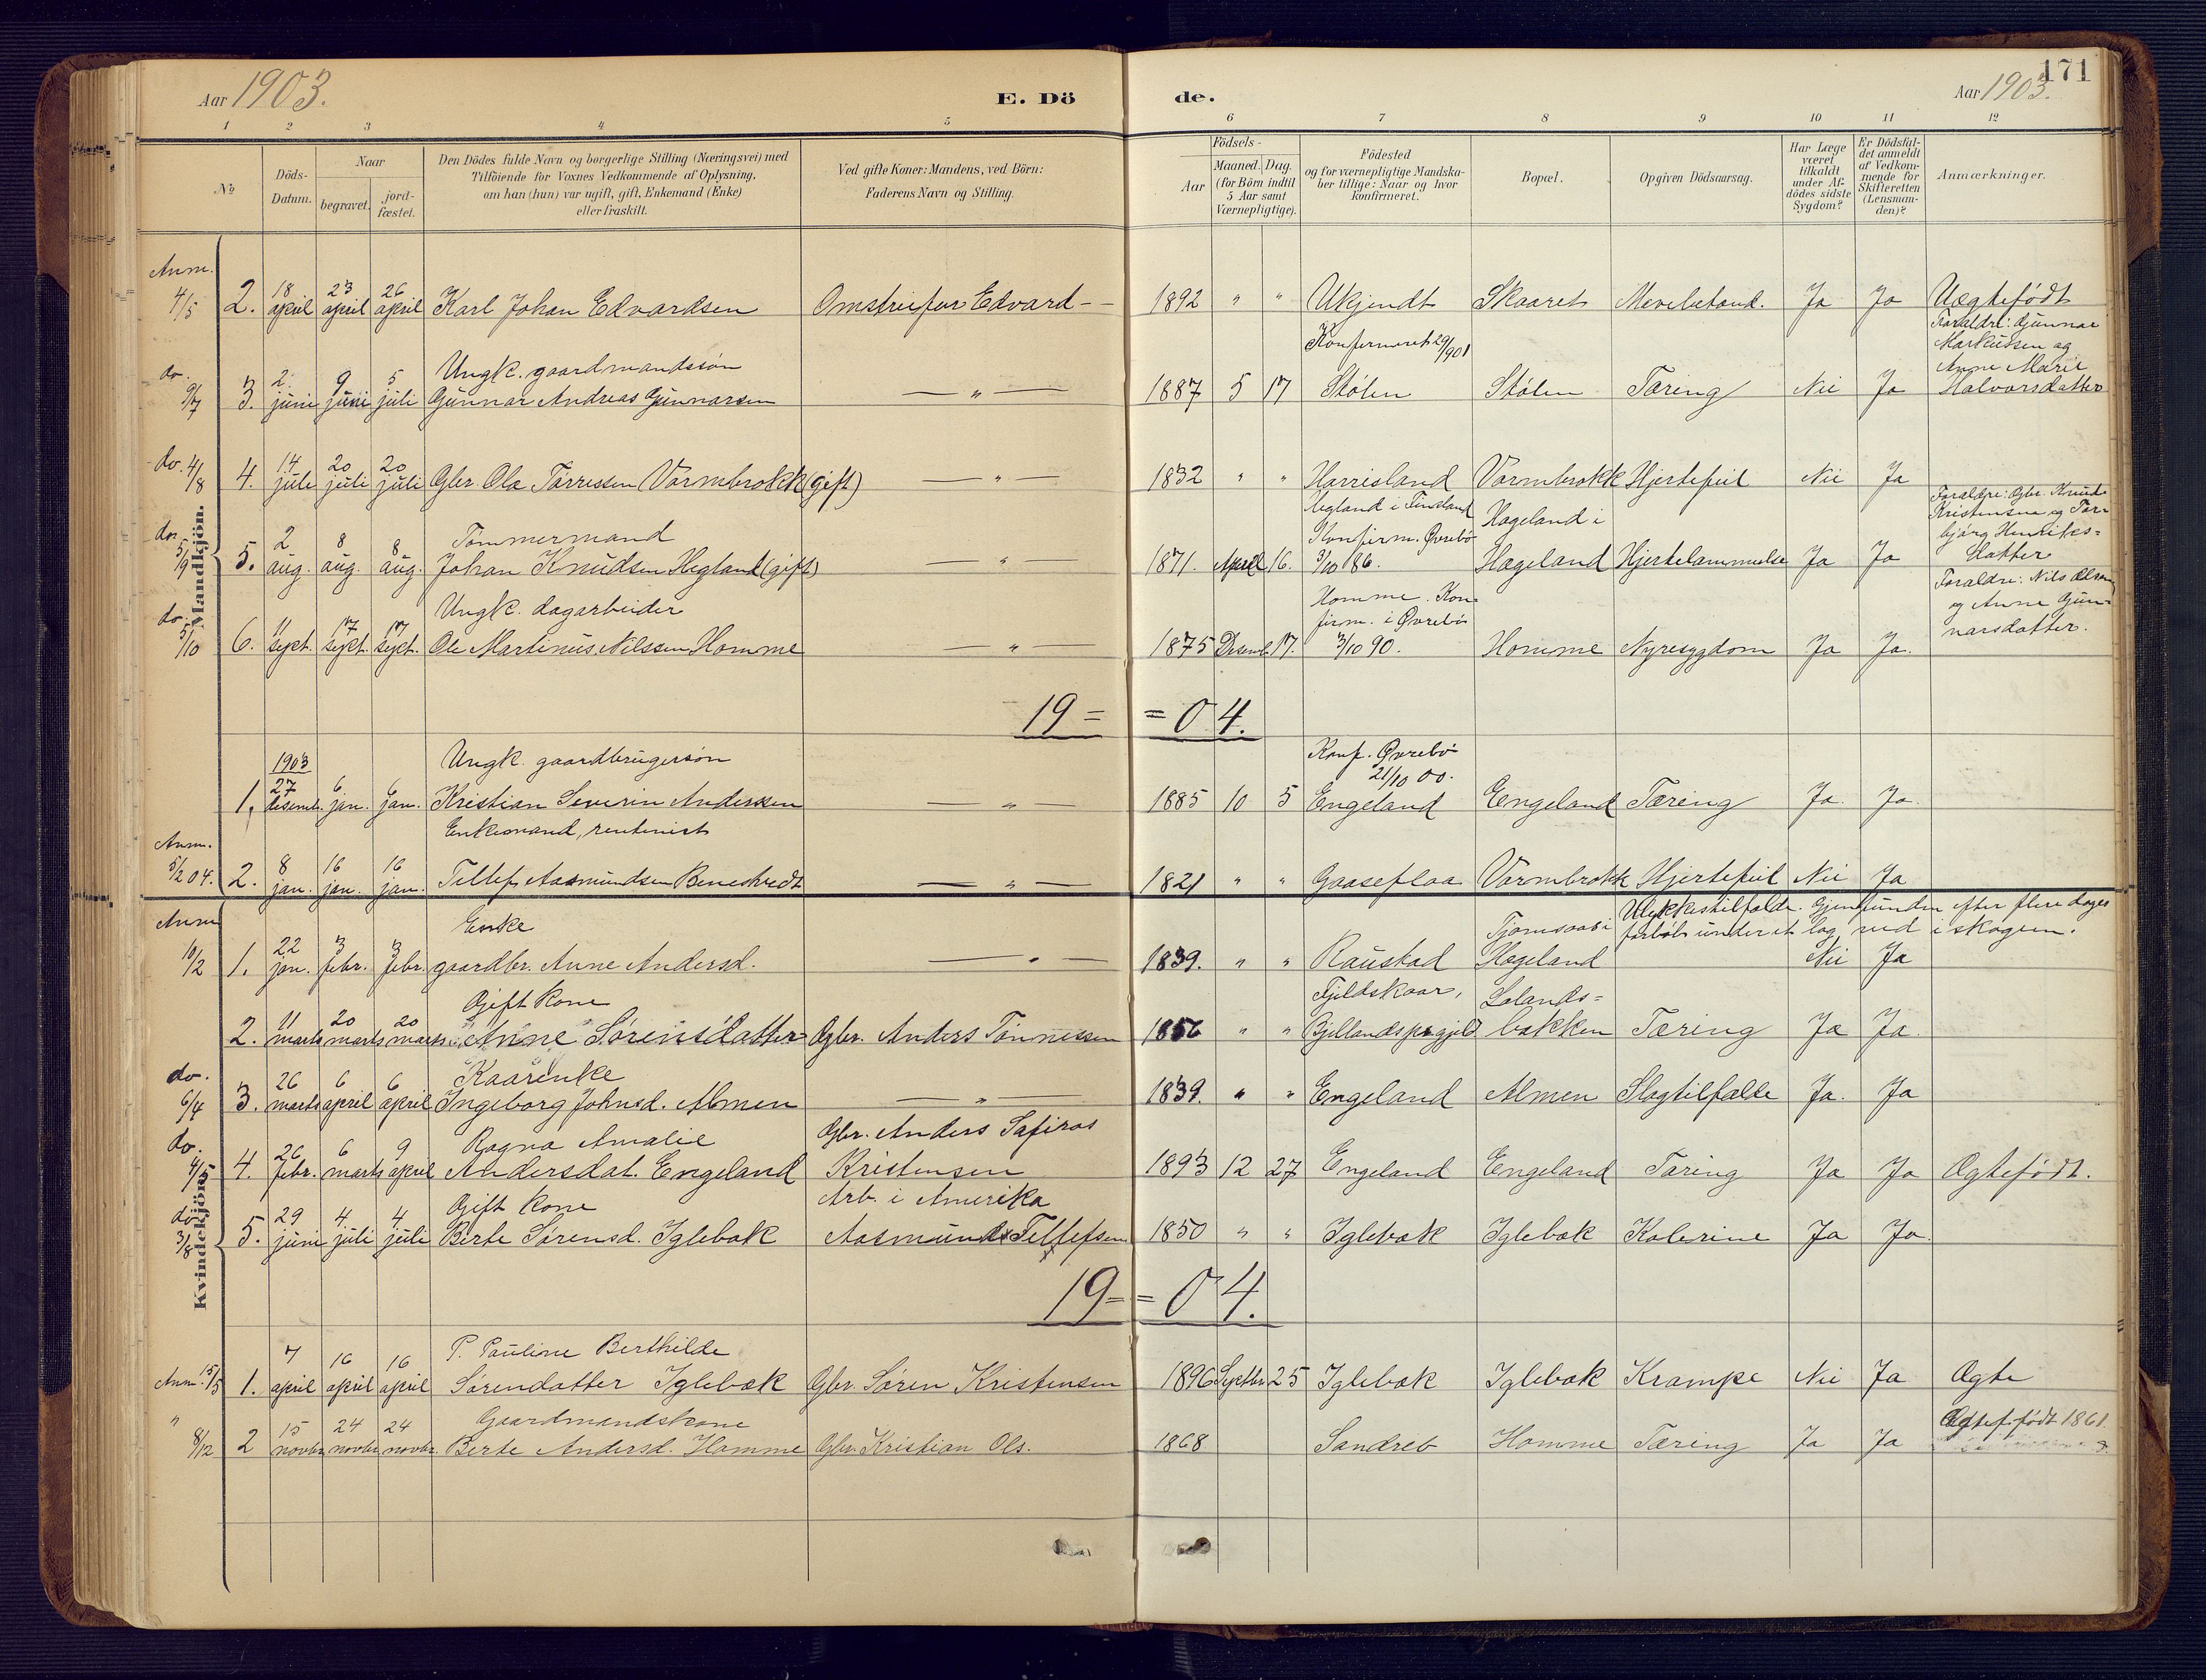 171
Aar 1903.
E. Dö
de.
Aar 1903.
1 2 3 4 5 6 7 8 9 10 11 12
№
Döds-
Datum.
Naar
begravet.
jord-
fæstet.
Den Dödes fulde Navn og borgerlige Stilling (Næringsvei) med
Tilföiende for Voxnes Vedkommende af Oplysning,
om han (hun) var ugift, gift, Enkemand (Enke)
eller fraskilt.
Ved gifte Koner: Mandens, ved Börn:
Faderens Navn og Stilling.
Födsels-
Aar
Maaned. Dag.
(for Börn indtil
5 Aar samt
Værnepligtige).
Födested
og for værnepligtige Mandska-
ber tillige: Naar og hvor
konfirmeret.
Bopæl.
Opgiven Dödsaarsag.
Har Læge
været
tilkaldt
under Af-
dödes sidste
Sygdom?
Er Dödsfal-
det anmeldt
af Vedkom-
mende for
Skifteretten
(Lensman-
den)?
Anmærkninger.
Mandkjön.
Anm.
18 23 26
4/5 2. april april april Karl Johan Edvardsen Edvard - - 1892 " " Ukjendt Skaaret Ja Ja Uægtefødt
Konfirmeret 29/901
Foraldre: Gunnar
Markussen og
Anne Marie
do. 2. 9 5 Ungk. gaardmandssøn
9/7 3. juni juni juli Gunnar Andreas Gunnarsen — " — 1887 5 17 Stølen Stølen Tæring Nei Ja Halvorsdatter
do. 4/8 14 20 20
4. juli juli juli Gbr. Ola Tørressen Vormbrokk (gift) — " — 1832 " " Harrisland Vormbrokk Hjertefeil Nei Ja
Hegland i Findland
Konfirm. Øvrebø
Hageland i
Foraldre: Gbr. Knud
Kristensen og Tor-
bjørg Henriks-
datter
do. 2 8 8 Tømmermand
5/9 5. aug. aug. aug. Johan Knudsen Hegland (gift) — " — 1871. April 16. 3/10 86. Hageland Hjertelammelse Ja Ja
Homme. Kon-
firm. i Øvrebø
Foraldre: Nils Olsen
og Anne Gun-
narsdatter.
do. 11 17 17 Ungk. dagarbeider
5/10 6. sept. sept. sept. Ole Martinus Nilssen Homme — " — 1875 Desemb. 17. 3/10 90. Homme Nyresygdom Ja Ja.
19 = = 04.
1903
27 6 6 Ungk. gaardbrugersøn
Konf. Øvrebø
21/10 00.
1. desemb. jan. jan. Kristian Severin Anderssen — " — 1885 10 5 Engeland Engeland Tæring Ja. Ja.
Anm. 8 16 16 Enkemand, rentenist
5/2 04. 2. jan. jan. jan. Tellef Aasmundsen Beneskredt — " — 1821 " " Gaaseflaa Vormbrokk Hjertefeil Nei Ja
Kvindekjön.
Anm 22 3 3 Enke
Tjomsaas i Ulykkestilfælde. Gjenfunden efter flere dages
forløb under et lag ved i skogen.
10/2 1. jan. febr. febr. gaardbr. Anne Andersd. — " — 1839. " " Raustad Hageland Nei Ja
11 20 20 Gift kone Fjeldskaar, Lolands=
2. marts marts marts Anne Sørensdatter Gbr. Anders Tønnessen 1856 " " Bjellands prgjeld bakken Tæring Ja Ja.
do. 26 6 6 Kaarenke
6/4 3. marts april april Ingeborg Johnsd. Almen — " — 1839. " " Engeland Almen Slagtilfælde Ja. Ja
do. 26 6 9 Ragna Amalie Gbr. Anders Safiras
4/5 4. febr. marts april Andersdat. Engeland Kristensen 1893 12 27 Engeland Engeland Tæring Ja Ja Ægtefødt.
do. 29 4 4 Gift kone Arb. i Amerika
3/8 5. juni juli juli Berte Sørensd. Iglebæk Aasmund Tellefsen 1850 " " Iglebæk Iglebæk Kolerine Ja Ja.
19 = = 04.
7 16 16 P. Pauline Berthilde
Anm. 15/5 1. april april april Sørendatter Iglebæk Gbr. Søren Kristensen 1896 Septbr. 25 Iglebæk Iglebæk Krampe Nei Ja Ægte
" 15 24 24 Gaardmandskone Ægtef. født 1861
8/12 2 novbr. novbr. novbr. Berte Andersd. Homme Gbr. Kristian Ols. 1868 Sandreb Homme Tæring Ja Ja